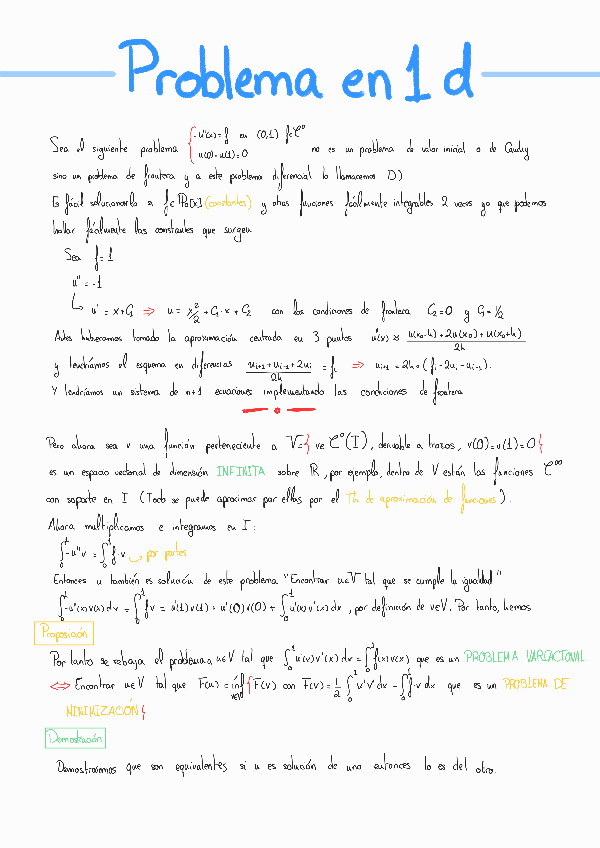 Problema en 1d
Sea el siguiente problema { -u''(x) = f en (0,1) f∈C⁰
u(0)=u(1)=0 no es un problema de valor inicial o de Cauchy
sino un problema de frontera y a este problema diferencial lo llamaremos D)
Es fácil solucionarlo si f∈P₀[x] (constantes) y otras funciones fácilmente integrables 2 veces ya que podemos
hallar fácilmente las constantes que surgen.
Sea f=1
u''=-1
u' = x+C₁ ⇒ u = x²/2 + C₁·x + C₂ con las condiciones de frontera C₂=0 y C₁=1/2
hubieramos tomado la aproximación centrada en 3 puntos u''(x) ≈ u(x₀-h)+2u(x₀)+u(x₀+h) / 2h
y tendríamos el esquema en diferencias uᵢ₊₁+uᵢ₋₁+2uᵢ / 2h = fᵢ ⇒ uᵢ₊₁ = 2h·(fᵢ-2uᵢ-uᵢ₋₁).
Y tendríamos un sistema de n+1 ecuaciones implementando las condiciones de frontera
Pero ahora sea v una función perteneciente a V={ v∈ C⁰(I), derivable a trozos, v(0)=v(1)=0}
es un espacio vectorial de dimensión INFINITA sobre R, por ejemplo, dentro de V están las funciones C^∞
con soporte en I (Todo se puede aproximar por ellas por el Th de aproximación de funciones).
Ahora multiplicamos e integramos en I:
∫₀¹ -u''v = ∫₀¹ f·v por partes
Entonces u también es solución de este problema "Encontrar u∈V tal que se cumple la igualdad"
∫₀¹ -u''(x)v(x)dx = ∫₀¹ fv = u'(1)v(1) + u'(0)v(0) + ∫₀¹ u'(x)v'(x)dx, por definición de v∈V. Por tanto, hemos
Proposición
Por tanto se rebaja el problema a u∈V tal que ∫₀¹ u'(x)v'(x)dx = ∫₀¹ f(x)v(x) que es un PROBLEMA VARIACIONAL
⇔ Encontrar u∈V tal que F(u) = inf v∈V {F(v) con F(v) = 1/2 ∫₀¹ v'v'dx - ∫₀¹ f·v dx que es un PROBLEMA DE
MINIMIZACIÓN}
Demostración
Demostraremos que son equivalentes si u es solución de uno entonces lo es del otro.